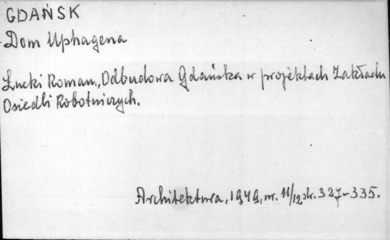 GDAŃSK
Dom Uphagena
Łucki Roman, Odbudowa Gdańska w projektach Zakładu
Osiedli Robotniczych.
Architektura, 1949, nr. 11/12 str. 327-335.